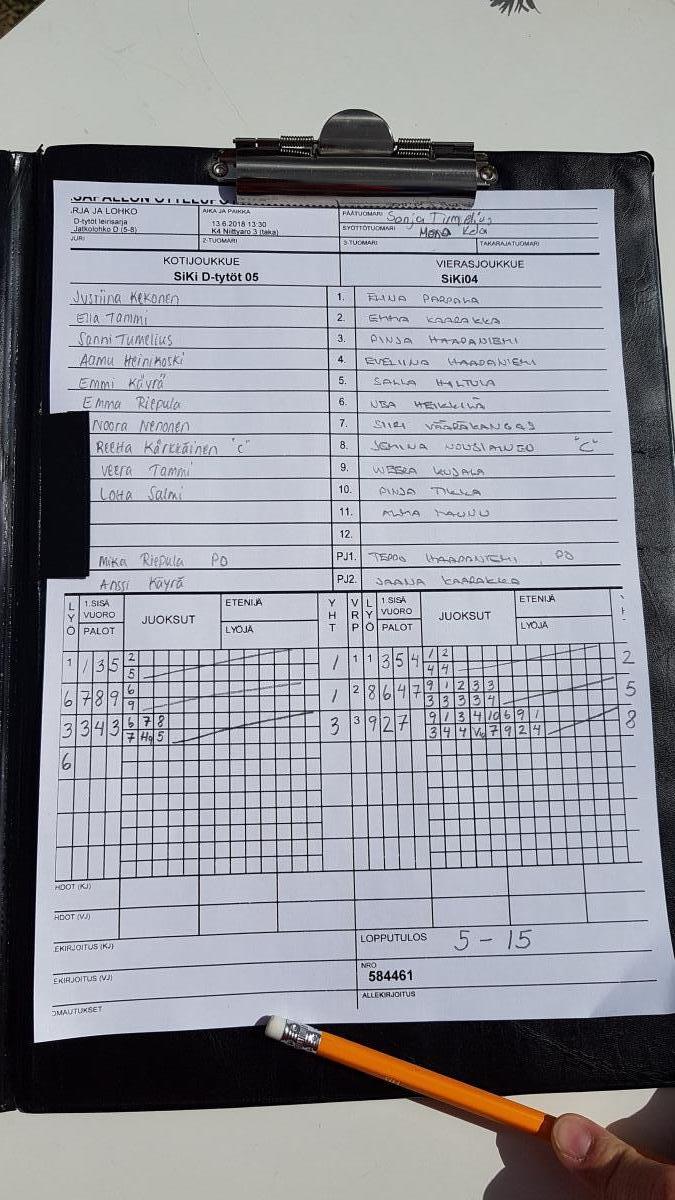 SARJA JA LOHKO AIKA JA PAIKKA PÄÄTUOMARI Sonja Tumelius
D-tytöt leirisarja 13.6.2018 13:30 SYÖTTÖTUOMARI
Jatkolohko D (5-8) K4 Niittyaro 3 (taka)
JURI 2-TUOMARI 3-TUOMARI TAKARAJATUOMARI
KOTIJOUKKUE VIERASJOUKKUE
SiKi D-tytöt 05 SiKi04
Justiina Kekonen 1. ELINA PARPALA
Ella Tammi 2. EMMA KAARAKKA
Sanni Tumelius 3. PINJA HAAPANIEMI
Aamu Heinikoski 4. EVELIINA HAAPANIEMI
Emmi Käyrä 5. SALLA HALTULA
Emma Riepula 6. NEA HEIKKILÄ
Noora Nenonen 7. SIIRI VÄÄRÄKANGAS
Reetta Kärkkäinen "C" 8. JEMINA NOUSIAINEN "C"
Veera Tammi 9. WEERA KUJALA
Lotta Salmi 10. PINJA TIKKA
11. ALMA
12.
Mika Riepula PO PJ1. TEPPO HAAPANIEMI, PO
Anssi Käyrä PJ2. JAANA KAARAKKA
LYÖ 1.SISÄ VUORO PALOT JUOKSUT ETENIJÄ LYÖJÄ YHT VRP LYÖ 1.SISÄ VUORO PALOT JUOKSUT ETENIJÄ LYÖJÄ
1 1 3 5 2 1 1 1 3 5 4 1 2 2
5 4 4
6 7 8 9 6 1 2 8 6 4 7 9 1 2 3 3 5
9 3 3 3 3 4
3 3 4 3 6 7 8 3 3 9 2 7 9 1 3 4 10 6 9 1 8
7 5 3 4 4 7 9 2 4
6
HDOT (KJ)
HDOT (VJ)
EKIRJOITUS (KJ) LOPPUTULOS 5 - 15
EKIRJOITUS (VJ) NRO
584461
OMAUTUKSET ALLEKIRJOITUS